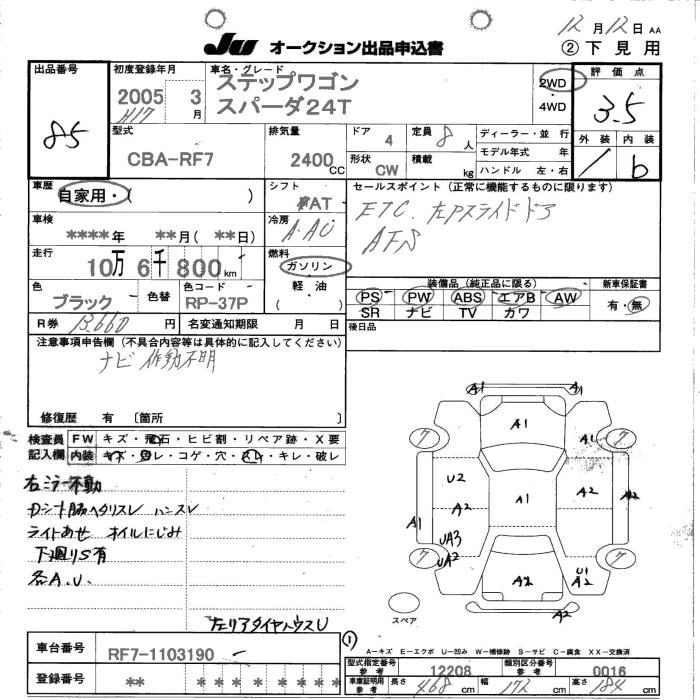 12月12日 AA
JU オークション出品申込書
② 下見用
出品番号
85
初度登録年月
2005 3月
H17
車名・グレード
ステップワゴン
スパーダ24T
2WD
4WD
評価点
3.5
外装 内装
b
型式
CBA-RF7
排気量
2400CC
ドア 4
定員 8人
形状 CW
積載 kg
ディーラー・並行
モデル年式 年
ハンドル 左・右
車歴
自家用・( )
シフト
AT
セールスポイント(正常に機能するものに限ります)
ETC 左Pスライドドア
車検
****年 **月( **日)
冷房
走行
10万 6千 800km
燃料
ガソリン
軽油
( )
色
ブラック
色替
色コード
RP-37P
装備品(純正品に限る)
PS PW ABS エアB AW
SR ナビ TV カワ
新車保証書
有・無
R券 13,660円
名変通知期限 月 日
後日品
注意事項申告欄(不具合内容等は具体的に記入してください)
ナビ 作動不明
修復歴 有 〔箇所 〕
検査員記入欄
FW キズ・飛石・ヒビ割・リペア跡・X要
内装 キズ・ヨゴレ・コゲ・穴・スレ・キレ・破レ
右ミラー不動
ハンスレ
ライトあせ オイルにじみ
下廻りS有
各A.U.
左リアタイヤハウスU
A1 A1
7 A1 A1 7
U2 A2
A2 A1 A2
A1
UA3
UA2
7 A2 U1 A2 7
A2
スペア
①
A-キズ E-エクボ U-凹み W-補修跡 S-サビ C-腐食 XX-交換済
車台番号
RF7-1103190
型式指定番号 参考
12208
類別区分番号 参考
0016
登録番号
** * * * * * * *
車庫証明用 参考
長さ 468cm
幅 172cm
高さ 184cm